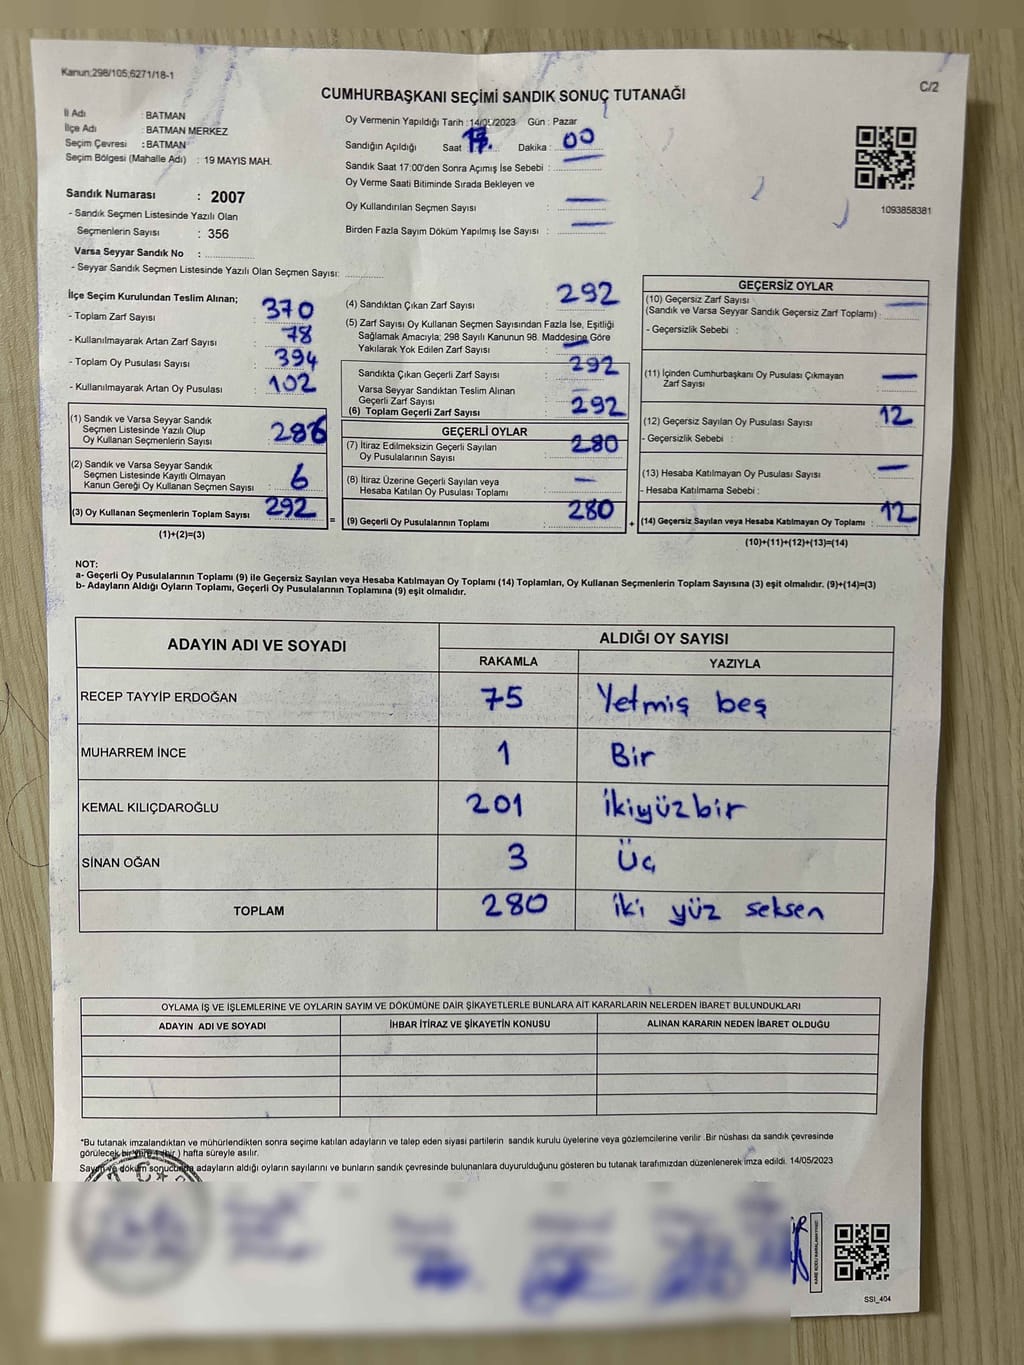 Kanun;298/105;6271/18-1
C/2
CUMHURBAŞKANI SEÇİMİ SANDIK SONUÇ TUTANAĞI
İl Adı : BATMAN
İlçe Adı : BATMAN MERKEZ
Seçim Çevresi : BATMAN
Seçim Bölgesi (Mahalle Adı) : 19 MAYIS MAH.
Sandık Numarası : 2007
- Sandık Seçmen Listesinde Yazılı Olan
Seçmenlerin Sayısı : 356
Varsa Seyyar Sandık No :
- Seyyar Sandık Seçmen Listesinde Yazılı Olan Seçmen Sayısı:
Oy Vermenin Yapıldığı Tarih :14/05/2023 Gün : Pazar
Sandığın Açıldığı Saat : 17 Dakika : 00
Sandık Saat 17:00'den Sonra Açımış İse Sebebi : —
Oy Verme Saati Bitiminde Sırada Bekleyen ve
Oy Kullandırılan Seçmen Sayısı : —
Birden Fazla Sayım Döküm Yapılmış İse Sayısı : —
1093858381
İlçe Seçim Kurulundan Teslim Alınan;
- Toplam Zarf Sayısı : 370
- Kullanılmayarak Artan Zarf Sayısı : 78
- Toplam Oy Pusulası Sayısı : 394
- Kullanılmayarak Artan Oy Pusulası : 102
(1) Sandık ve Varsa Seyyar Sandık
Seçmen Listesinde Yazılı Olup
Oy Kullanan Seçmenlerin Sayısı : 286
(2) Sandık ve Varsa Seyyar Sandık
Seçmen Listesinde Kayıtlı Olmayan
Kanun Gereği Oy Kullanan Seçmen Sayısı : 6
(3) Oy Kullanan Seçmenlerin Toplam Sayısı : 292
(1)+(2)=(3)
(4) Sandıktan Çıkan Zarf Sayısı : 292
(5) Zarf Sayısı Oy Kullanan Seçmen Sayısından Fazla İse, Eşitliği
Sağlamak Amacıyla; 298 Sayılı Kanunun 98. Maddesine Göre
Yakılarak Yok Edilen Zarf Sayısı : —
Sandıkta Çıkan Geçerli Zarf Sayısı : 292
Varsa Seyyar Sandıktan Teslim Alınan
Geçerli Zarf Sayısı :
(6) Toplam Geçerli Zarf Sayısı : 292
GEÇERLİ OYLAR
(7) İtiraz Edilmeksizin Geçerli Sayılan
Oy Pusulalarının Sayısı : 280
(8) İtiraz Üzerine Geçerli Sayılan veya
Hesaba Katılan Oy Pusulası Toplamı : —
(9) Geçerli Oy Pusulalarının Toplamı : 280
GEÇERSİZ OYLAR
(10) Geçersiz Zarf Sayısı
(Sandık ve Varsa Seyyar Sandık Geçersiz Zarf Toplamı) : —
- Geçersizlik Sebebi :
(11) İçinden Cumhurbaşkanı Oy Pusulası Çıkmayan
Zarf Sayısı : —
(12) Geçersiz Sayılan Oy Pusulası Sayısı : 12
- Geçersizlik Sebebi :
(13) Hesaba Katılmayan Oy Pusulası Sayısı : —
- Hesaba Katılmama Sebebi :
(14) Geçersiz Sayılan veya Hesaba Katılmayan Oy Toplamı : 12
(10)+(11)+(12)+(13)=(14)
NOT:
a- Geçerli Oy Pusulalarının Toplamı (9) ile Geçersiz Sayılan veya Hesaba Katılmayan Oy Toplamı (14) Toplamları, Oy Kullanan Seçmenlerin Toplam Sayısına (3) eşit olmalıdır. (9)+(14)=(3)
b- Adayların Aldığı Oyların Toplamı, Geçerli Oy Pusulalarının Toplamına (9) eşit olmalıdır.
ADAYIN ADI VE SOYADI ALDIĞI OY SAYISI
RAKAMLA YAZIYLA
RECEP TAYYİP ERDOĞAN 75 Yetmiş beş
MUHARREM İNCE 1 Bir
KEMAL KILIÇDAROĞLU 201 ikiyüzbir
SİNAN OĞAN 3 Üç
TOPLAM 280 iki yüz seksen
OYLAMA İŞ VE İŞLEMLERİNE VE OYLARIN SAYIM VE DÖKÜMÜNE DAİR ŞİKAYETLERLE BUNLARA AİT KARARLARIN NELERDEN İBARET BULUNDUKLARI
ADAYIN ADI VE SOYADI İHBAR İTİRAZ VE ŞİKAYETİN KONUSU ALINAN KARARIN NEDEN İBARET OLDUĞU
*Bu tutanak imzalandıktan ve mühürlendikten sonra seçime katılan adayların ve talep eden siyasi partilerin sandık kurulu üyelerine veya gözlemcilerine verilir .Bir nüshası da sandık çevresinde
görülecek bir yere 1 (bir ) hafta süreyle asılır.
Sayım ve döküm sonucunda adayların aldığı oyların sayılarını ve bunların sandık çevresinde bulunanlara duyurulduğunu gösteren bu tutanak tarafımızdan düzenlenerek imza edildi. 14/05/2023
SSI_404